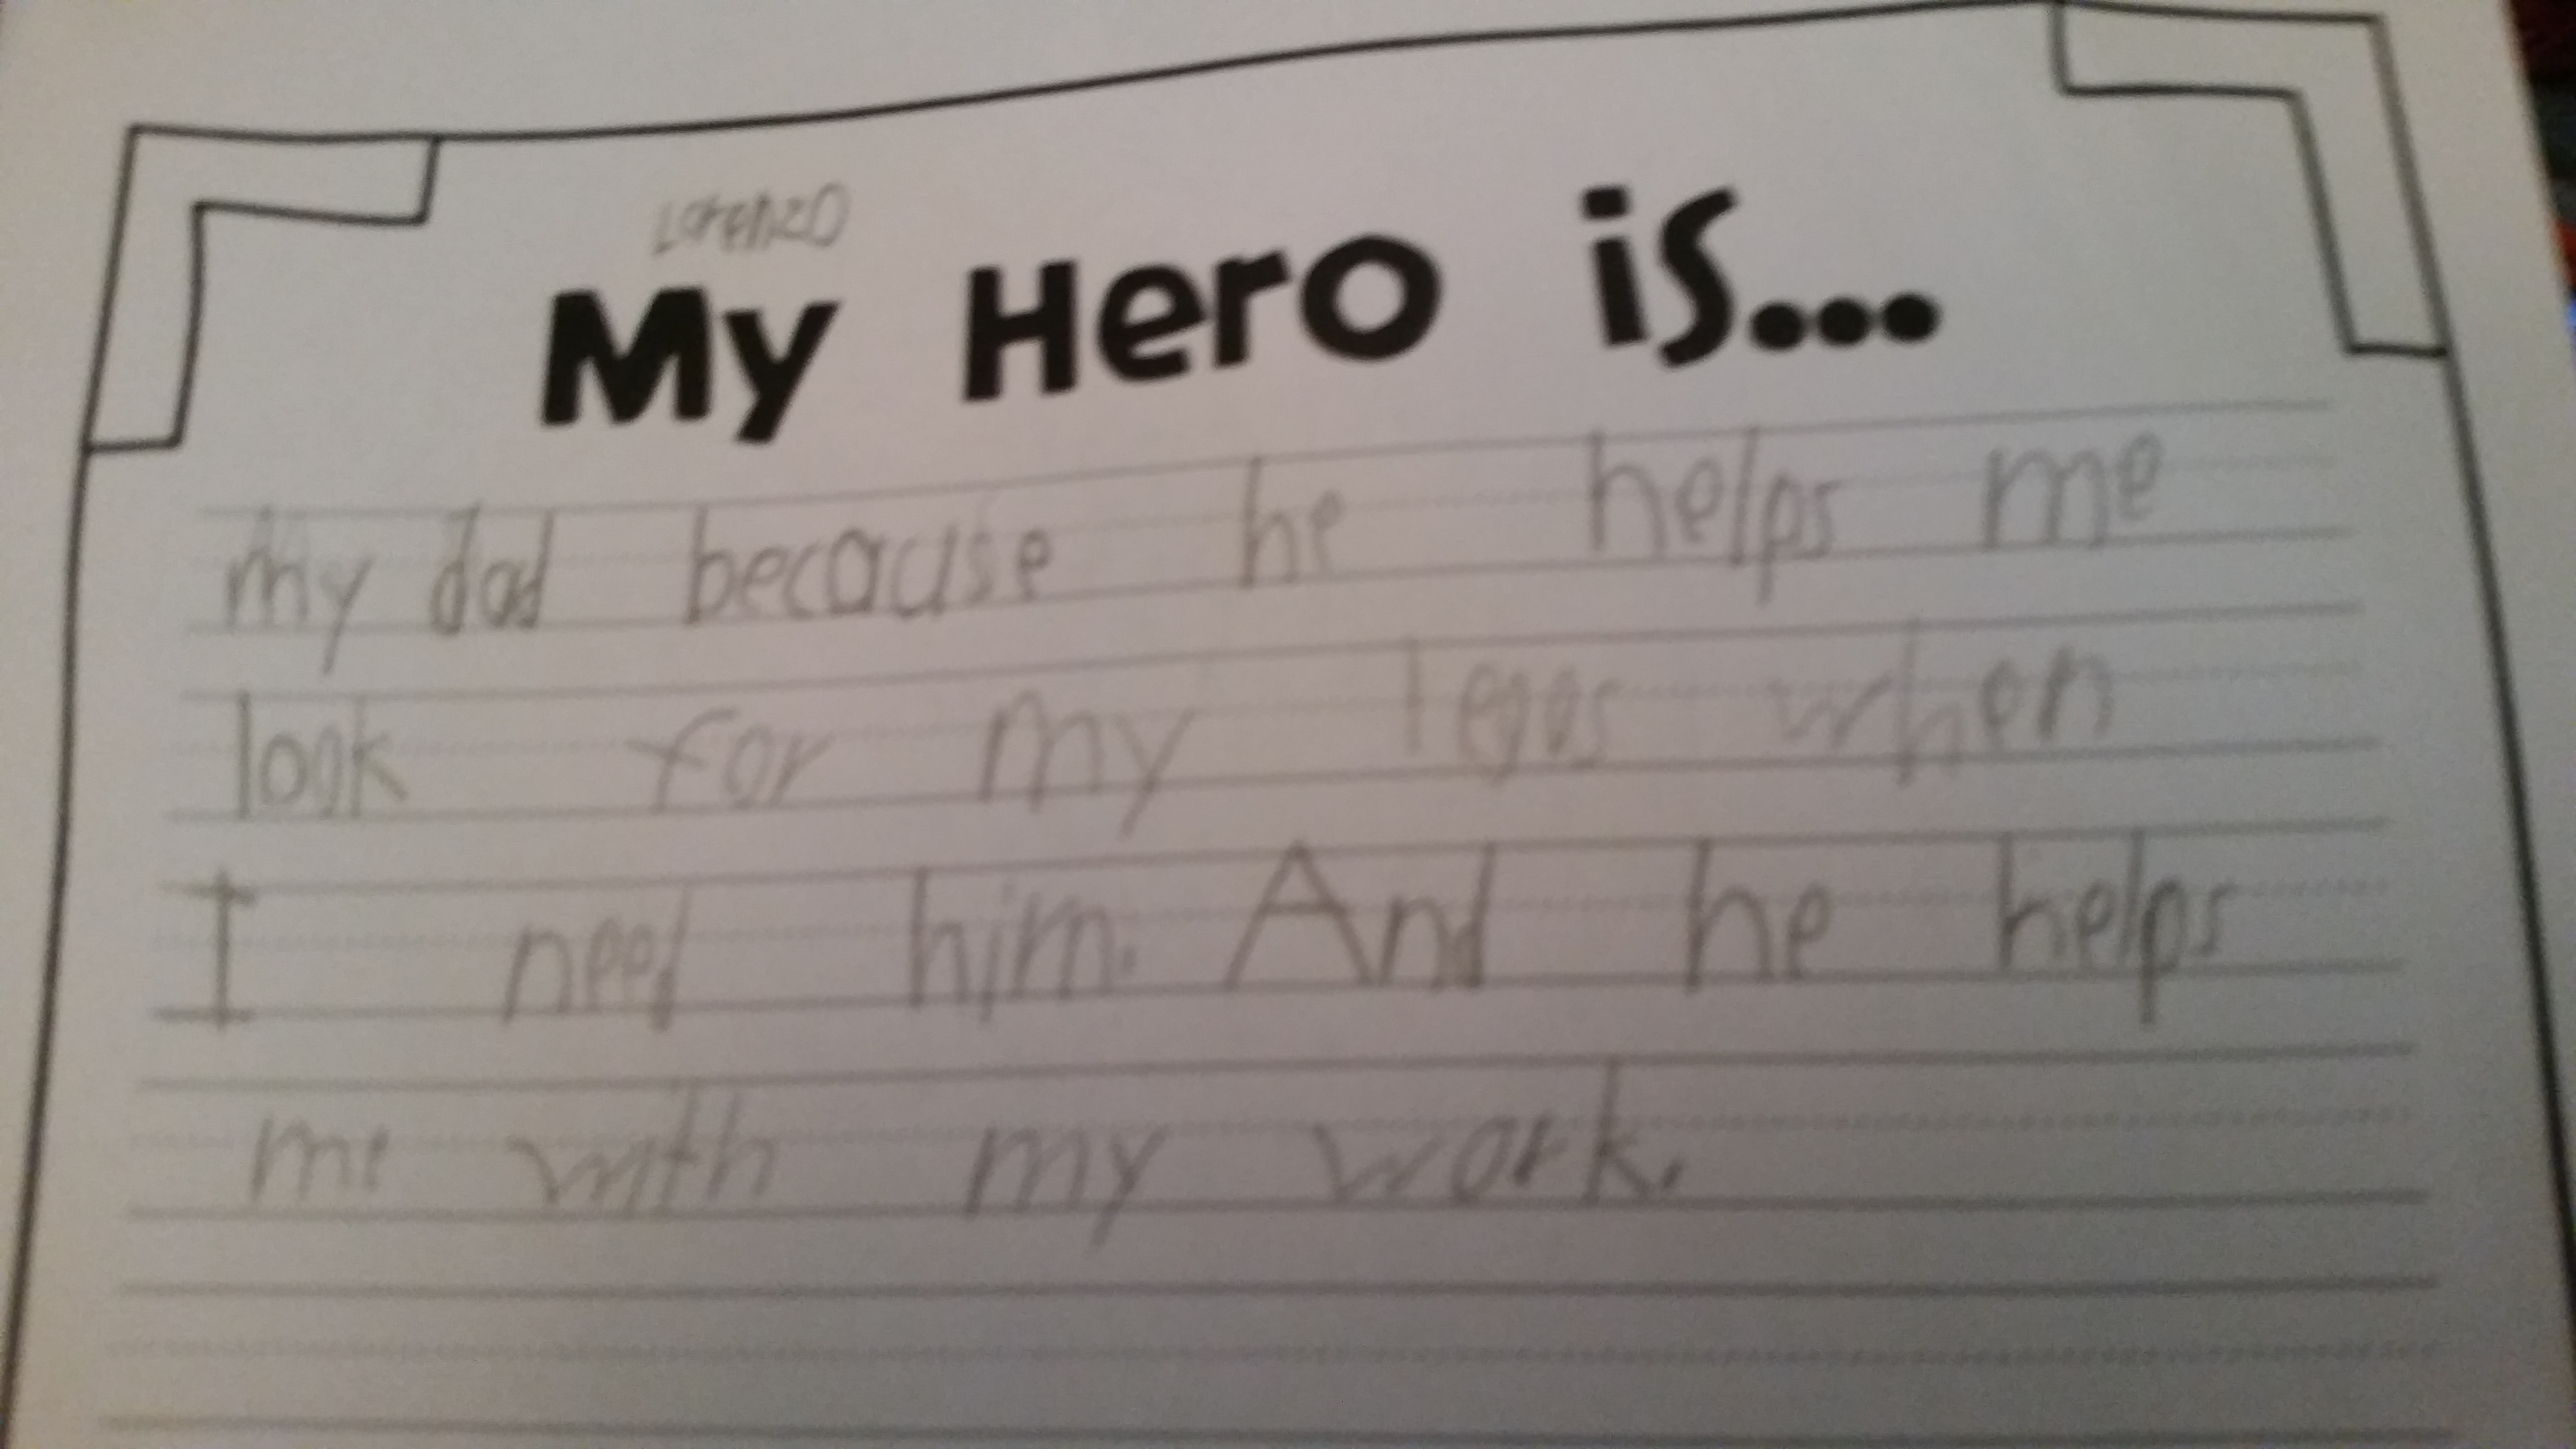 Lorenzo
My Hero is...
my dad because he helps me
look for my legos when
I need him. And he helps
me with my work.